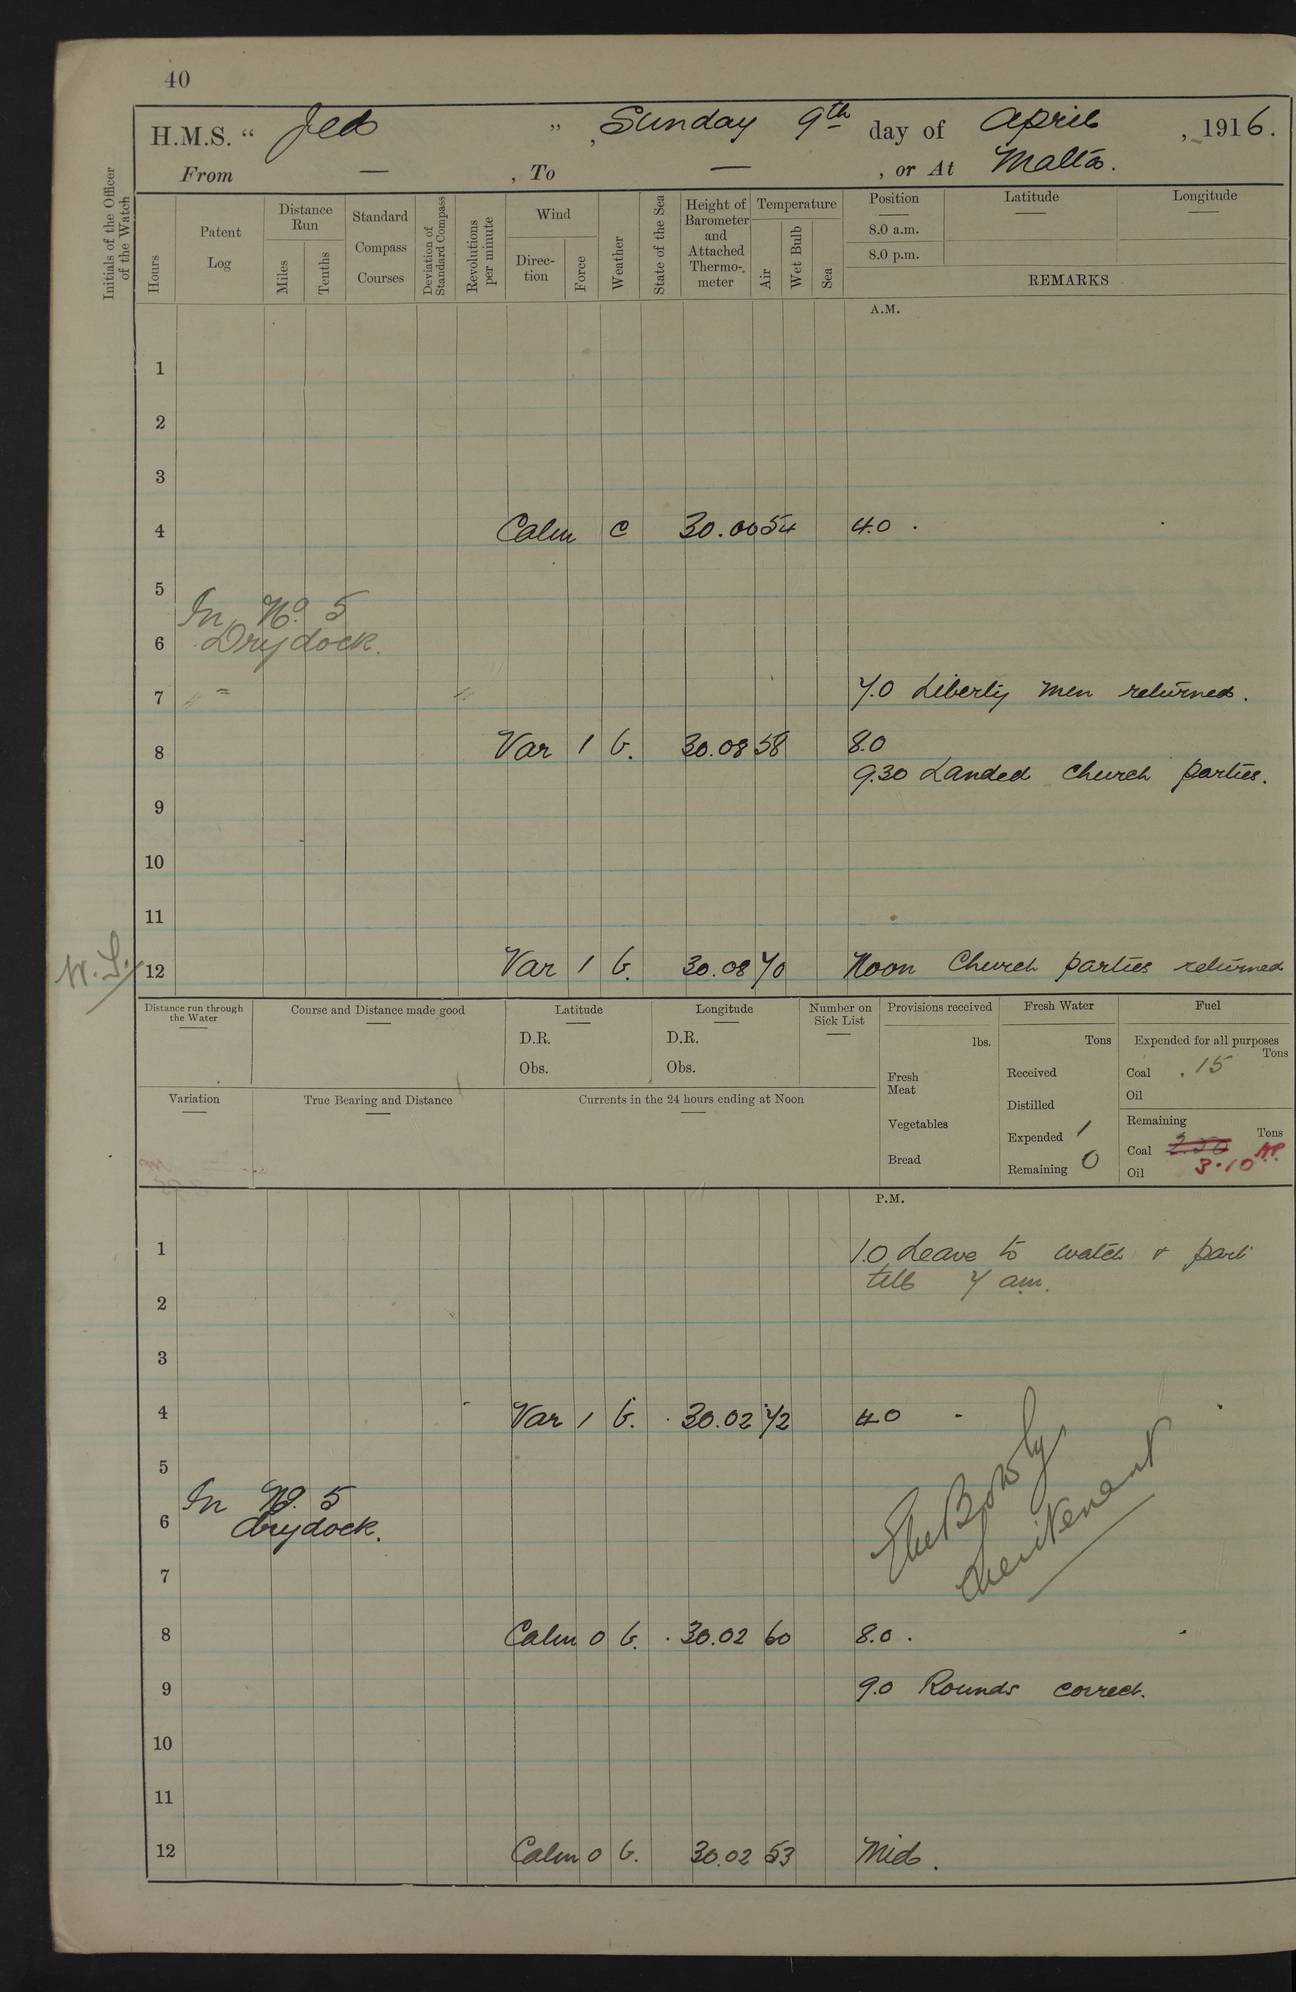 40
H.M.S. " Jed ", Sunday 9th day of April, 1916.
From — , To — , or At Malta.
Initials of the Officer of the Watch
Hours
Patent Log
Distance Run
Miles
Tenths
Standard Compass Courses
Deviation of Standard Compass
Revolutions per minute
Wind
Direction
Force
Weather
State of the Sea
Height of Barometer and Attached Thermometer
Temperature
Air
Wet Bulb
Sea
Position
8.0 a.m.
8.0 p.m.
Latitude
Longitude
REMARKS
A.M.
1
2
3
4 Calm c 30.00 54 4.0 .
5
In No. 5
6 Drydock.
7 " = " 7.0 Liberty men returned.
8 Var 1 b. 30.08 58 8.0
9.30 Landed church parties.
9
10
11
12 Var 1 b. 30.08 70 Noon Church parties returned
Distance run through the Water
Course and Distance made good
Latitude
D.R.
Obs.
Longitude
D.R.
Obs.
Number on Sick List
Provisions received
lbs.
Fresh Meat
Vegetables
Bread
Fresh Water
Tons
Received
Distilled
Expended 1
Remaining 0
Fuel
Expended for all purposes
Tons
Coal .15
Oil
Remaining
Tons
Coal
Oil 3.10
Variation
True Bearing and Distance
Currents in the 24 hours ending at Noon
P.M.
1 1.0 Leave to watch & part
till 7 am.
2
3
4 Var 1 b. 30.02 72 4.0
5
In No. 5
6 drydock.
Lieutenant
7
8 Calm 0 b. 30.02 60 8.0 .
9 9.0 Rounds correct.
10
11
12 Calm 0 b. 30.02 53 Mid.